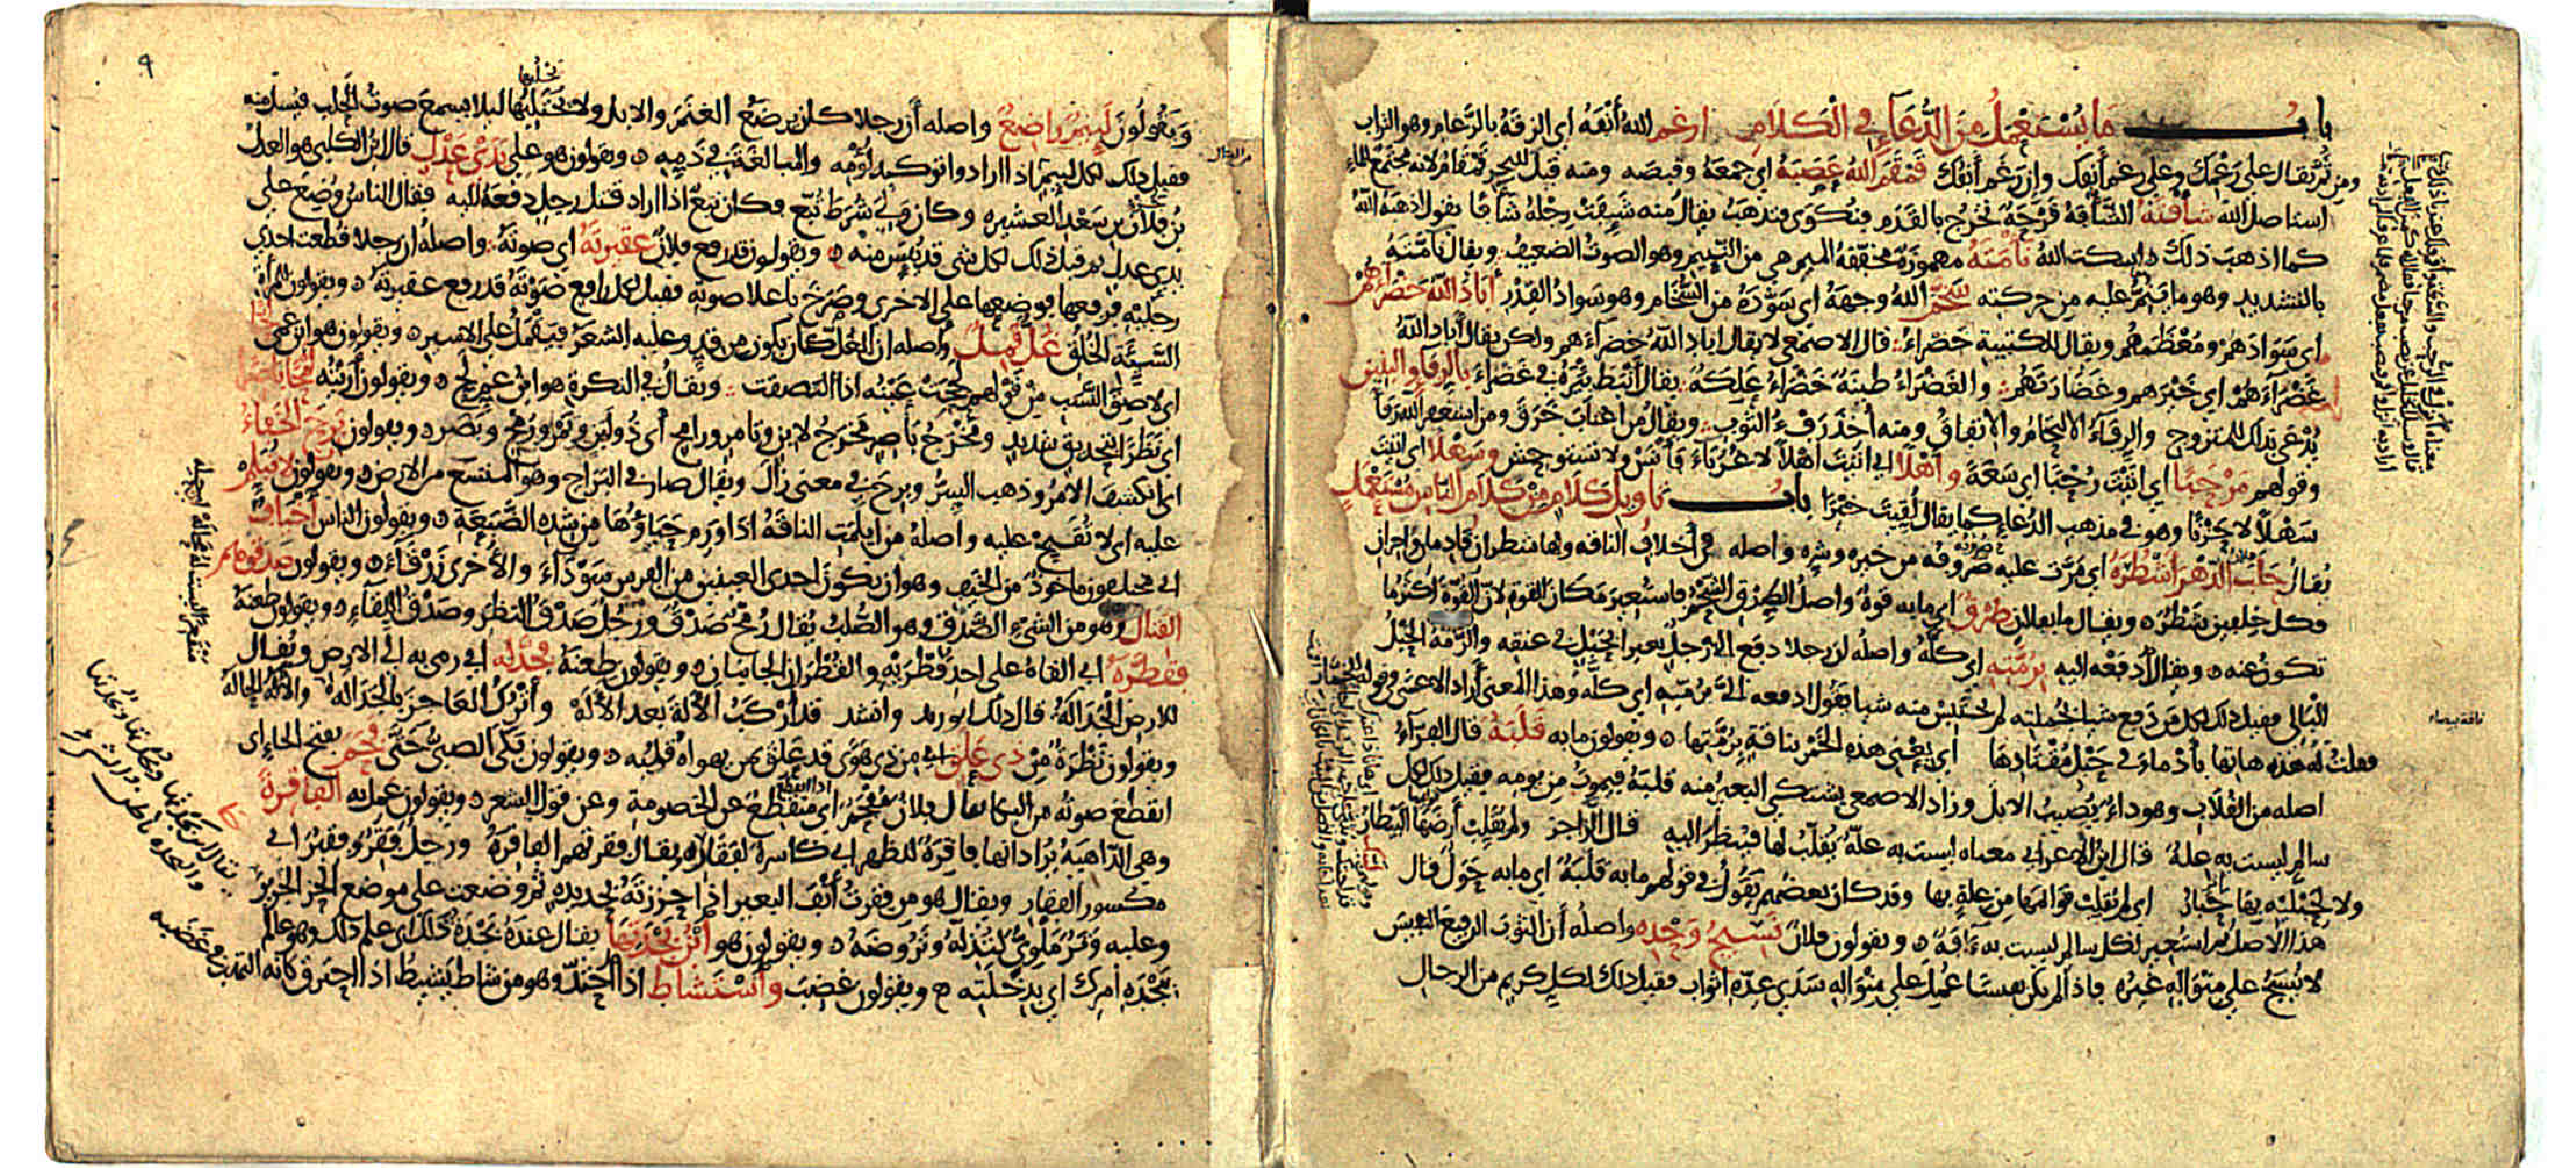 باب ما يستعمل من الدعاء في الكلام ارغم الله أنفه اي الزقه بالرغام وهو التراب
ومن ثم يقال على رغمك وعلى رغم أنفك وإن رغم أنفك قمقم الله عصبه اي جمعه وقبضه ومنه قيل للبحر قمقام لانه مجتمع الماء
استاصل الله شأفته الشأفة قرحة تخرج بالقدم فتكوى فتذهب يقال منه شئفت رجله شأفا يقول اذهبه الله
كما اذهب ذلك اسكت الله نأمته مهموزة مخففة الميم هي من النئيم وهو الصوت الضعيف ويقال نامته
بالتشديد وهو ما ينم عليه من حركته سخم الله وجهه اي سوده من السخام وهو سواد القدر أباد الله خضراءهم
اي سوادهم ومعظمهم ويقال للكتيبة خضراء قال الاصمعي لا يقال اباد الله خضراءهم ولكن يقال أباد الله
غضراءهم اي خيرهم وغضارتهم والغضراء طينة خضراء علكة يقال أنبط بئره في غضراء بالرفاء والبنين
يدعى بذلك للمتزوج والرفاء الالتحام والاتفاق ومنه أخذ رفء الثوب ويقال من اغتاب خرق ومن استغفر الله رفأ
وقولهم مرحبا اي اتيت رحبا اي سعة واهلا اي اتيت أهلا لا غرباء فأنس ولا تستوحش وسهلا اي اتيت
سهلا لا حزنا وهو في مذهب الدعاء كما يقال لقيت خيرا باب تاويل كلام من كلام الناس مستعمل
يقال حلب فلان الدهر أشطره اي مرت عليه ضروبه من خيره وشره واصله من أخلاف الناقة ولها شطران قادمان واخران
فكل خلفين شطر ويقال ما بفلان طرق اي ما به قوة واصل الطرق الشحم فاستعير مكان القوة لان القوة أكثر ما
تكون عنه ويقال ادفعه اليه برمته اي كله واصله أن رجلا دفع الى رجل بعيرا بحبل في عنقه والرمة الحبل
البالي فقيل ذلك لكل من دفع شيا بجملته لم يحتبس منه شيا يقول ادفعه الي برمته اي كله وهذا المعنى أراد الاعشى في قوله للخمار
فقلت له هذه هاتها بأدماء في حبل مقتادها اي بعني هذه الخمر بناقة برمتها ويقولون ما به قلبة قال الفراء
اصله من القلاب وهو داء يصيب الابل وزاد الاصمعي يشتكي البعير منه قلبه فيموت من يومه فقيل ذلك لكل
سالم ليست به علة قال ابن الاعرابي معناه ليست به علة يقلب لها فينظر اليه قال الراجز ولم يقلب أرضها البيطار
ولا لحبليه بها حبار اي لم يقلب قوائمها من علة بها وقد كان بعضهم يقول في قولهم ما به قلبة اي ما به حول قال
هذا الاصل ثم استعير لكل سالم ليست به آفة ويقولون فلان نسيج وحده واصله أن الثوب الرفيع النفيس
لا ينسج على منواله غيره فاذا لم يكن نفيسا عمل على منواله سدى عدة اثواب فقيل ذلك لكل كريم من الرجال
ناقة بيضاء
٩
ويقولون لئيم راضع واصله أن رجلا كان يرضع الغنم والابل ولا يحتلبها ليلا يسمع صوت الحلب فيسئل منه
فقيل ذلك لكل لئيم اذا ارادوا توكيد لؤمه والمبالغة في ذمه ويقولون هو على يدي عدل قال ابن الكلبي هو العدل
بن فلان بن سعد العشيرة وكان ولي شرط تبع وكان تبع اذا اراد قتل رجل دفعه اليه فقال الناس وضع على
يدي عدل ثم قيل ذلك لكل شي قد يئس منه ويقولون قد رفع فلان عقيرته اي صوته واصله ان رجلا قطعت احدى
رجليه فرفعها فوضعها على الاخرى وصرخ باعلا صوته فقيل لكل رافع صوته قد رفع عقيرته ويقولون للمرأة
السيئة الخلق غل قمل واصله ان الغل كان يكون من قد وعليه الشعر فيقمل على الاسير ويقولون هو ابن عمي لحا
اي لاصق النسب من قولهم لححت عينه اذا التصقت ويقال في النكرة هو ابن عم لح ويقولون أريته لمحا باصرا
اي نظرا بتحديق شديد ومخرج باصر مخرج لابن وتامر ورامح أي ذو لبن وتمر ورمح وبصر ويقولون برح الخفاء
اي انكشف الامر وذهب السر وبرح في معنى زال ويقال صار في البراح وهو المتسع من الارض ويقولون لا تبلم
عليه اي لا تقبح عليه واصله من ابلمت الناقة اذا ورم حياؤها من شدة الضبعة ويقولون الناس أخياف
اي مختلفون ماخوذ من الخيف وهو ان تكون احدى العينين من الفرس سوداء والأخرى زرقاء ويقولون صدقوهم
القتال وهو من الشيء الصدق وهو الصلب يقال رمح صدق ورجل صدق النظر وصدق اللقاء ويقولون طعنه
فقطره اي القاه على احد قطريه والقطران الجانبان ويقولون طعنه فجدله اي رمى به الى الارض ويقال
للارض الجدالة قال ذلك ابو زيد وانشد قد أركب الآلة بعد الآله وأترك العاجز بالجداله والآلة الحالة
ويقولون نظرة من ذي علق اي من ذي هوى قد علق بمن يهواه قلبه ويقولون بكى الصبي حتى فحم بفتح الحاء اي
انقطع صوته من البكا يقال فلان مفحم اي منقطع عن الخصومة وعن قول الشعر ويقولون عمل به الفاقرة
وهي الداهية يراد انها فاقرة للظهر اي كاسرة لفقاره يقال فقرتهم الفاقرة ورجل فقر وفقير اي
مكسور الفقار ويقال هو من فقرت أنف البعير اذا حززته بحديدة ثم وضعت على موضع الحز الجرير
وعليه وتر ملوي لتذله وتروضه ويقولون هو ابن بجدتها يقال عنده بجدة ذلك اي علم ذلك وهو عالم
ببجدة أمرك اي بدخلته ويقولون غضب واستشاط اذا احتد وهو من شاط يشيط اذا احترق كانه التهب في غضبه